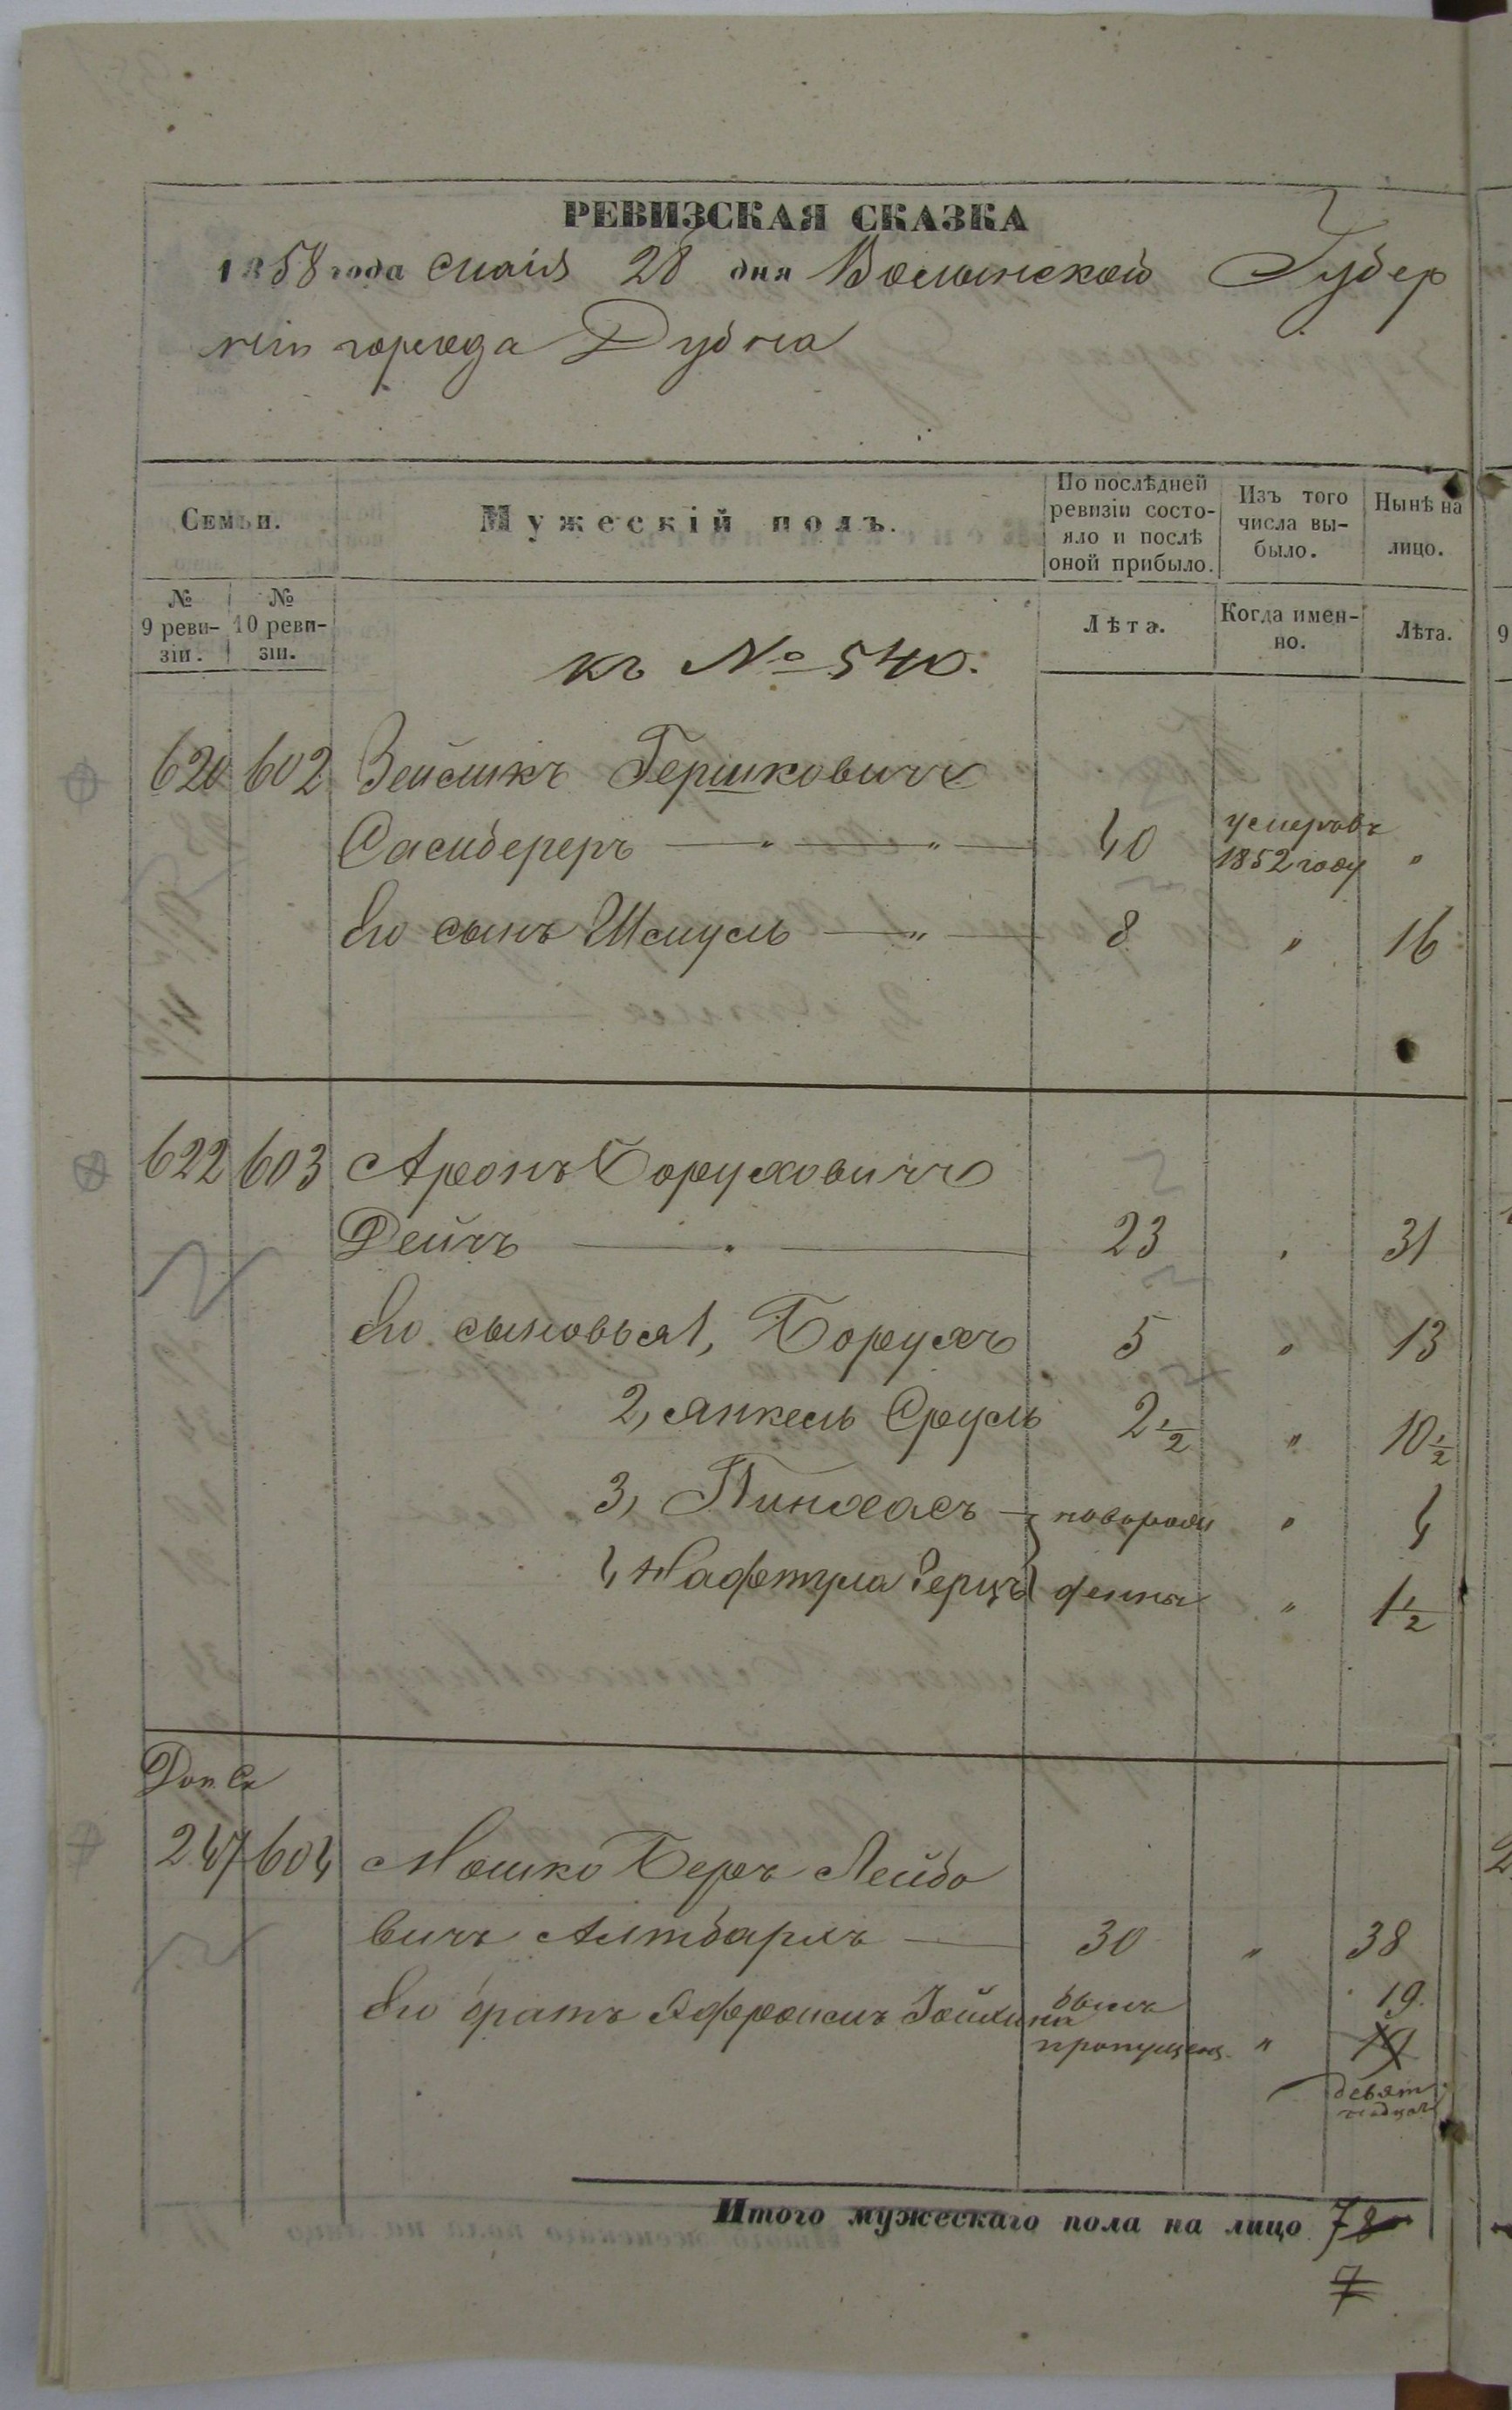 РЕВИЗСКАЯ СКАЗКА
1858 года Маія 28 дня Волынской Губер
ніи города Дубна
Семьи. Мужескій полъ. По послѣдней ревизіи состо- яло и послѣ оной прибыло. Изъ того числа вы- было. Нынѣ на лицо.
№ 9 реви- зіи. № 10 реви- зіи. Лѣта. Когда имен- но. Лѣта.
къ № 540.
620 602 Зейликъ Гершковичъ
40 умеръ въ 1852 году "
Его сынъ Шмуль — " — 8 " 16
622 603 Аронъ Боруховичъ
Дейчъ 23 " 31
Его сыновья 1, Борухъ 5 " 13
2, Янкель Сруль 2 1/2 " 10 1/2
3, Пинхасъ — новорож " 4
4, Нафтула Герцъ денны " 1 1/2
Доп. Ск
247 604 Мошко Беръ Лейбо
вичъ 30 " 38
Его братъ Эфроимъ былъ пропущенъ " 19
19
девят
надцать
Итого мужескаго пола на лицо 78
7